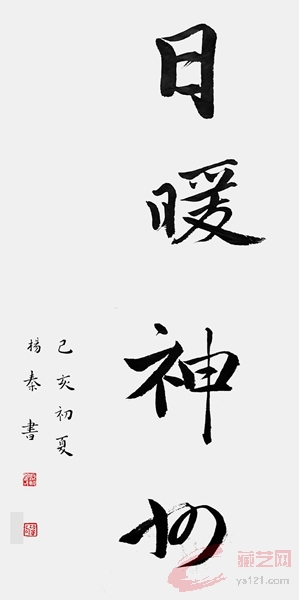 日暖神州
己亥初夏
杨秦书
藏艺网
ys121.com